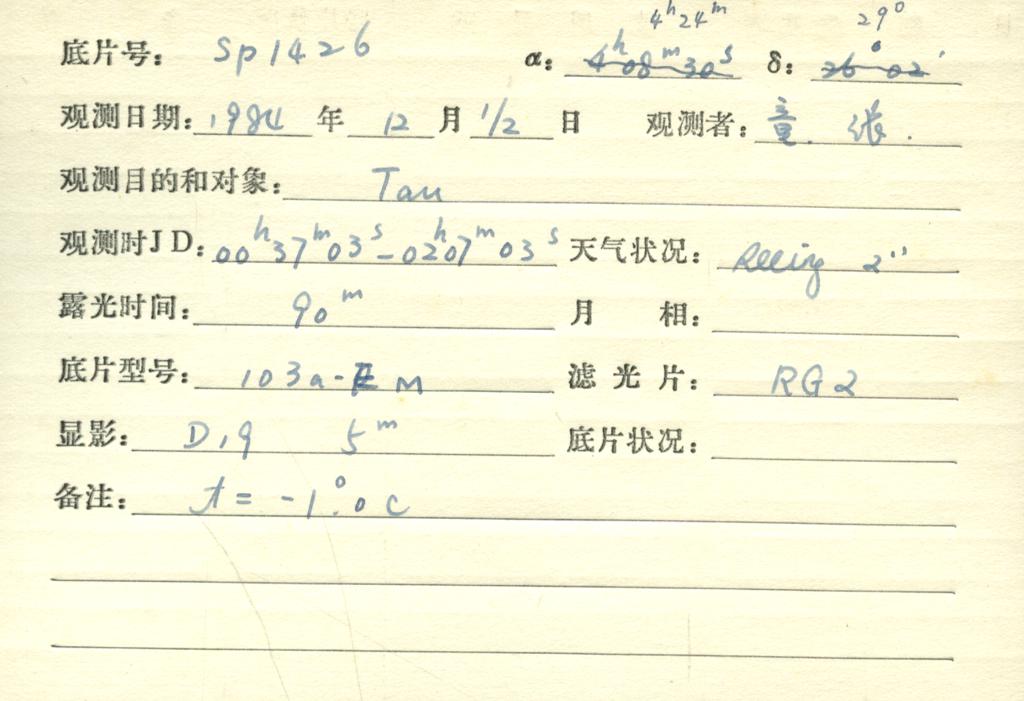 4ʰ24ᵐ 29°
底片号: Sp1426 α: 4ʰ08ᵐ30ˢ δ: 26°02′
观测日期: 1984 年 12 月 1/2 日 观测者: 童. 张.
观测目的和对象: Tau
观测时JD: 00ʰ37ᵐ03ˢ-02ʰ07ᵐ03ˢ 天气状况: Seeing 2″
露光时间: 90ᵐ 月 相:
底片型号: 103a-E M 滤光片: RG2
显影: D19 5ᵐ 底片状况:
备注: t= -1°.0 C